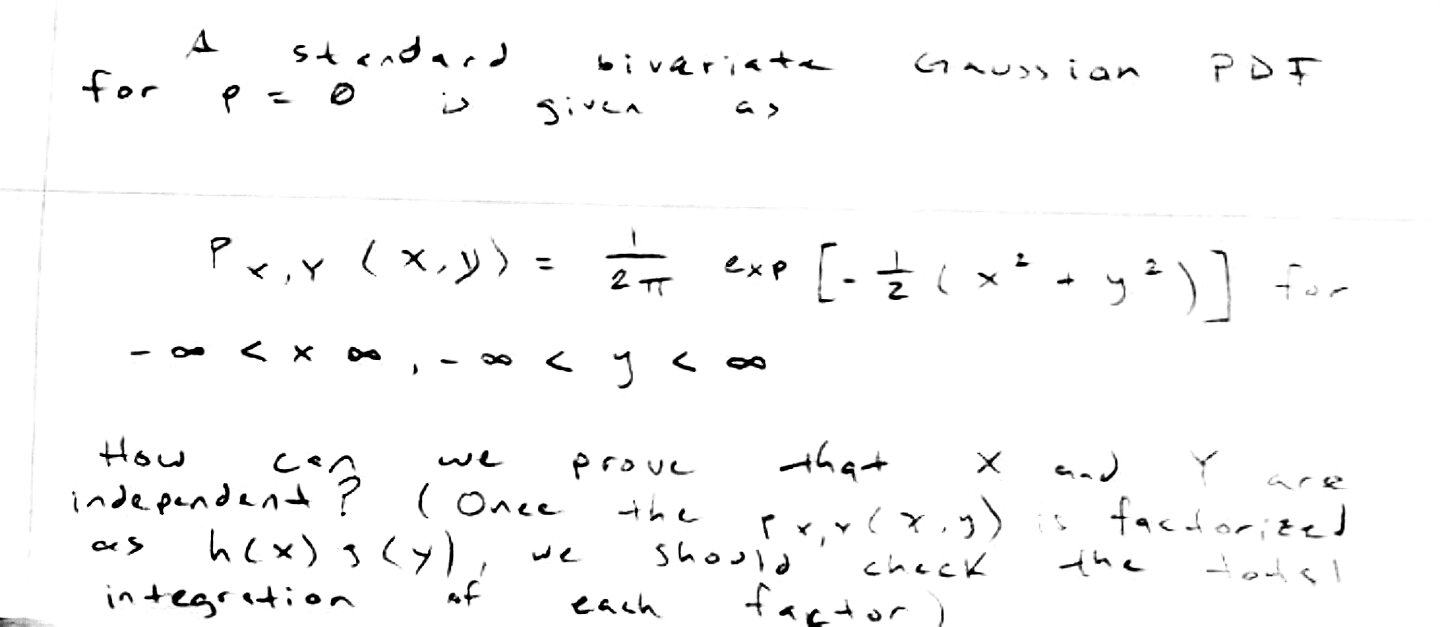 A standard bivariate Gaussian PDF
for ρ = 0 is given as
P_{X,Y} (x,y) = 1/2π exp [-1/2 (x² + y²)] for
- ∞ < x ∞, - ∞ < y < ∞
How can we prove that X and Y are
independent? (Once the P_{X,Y}(x,y) is factorized
as h(x) g(y), we should check the total
integration of each factor)